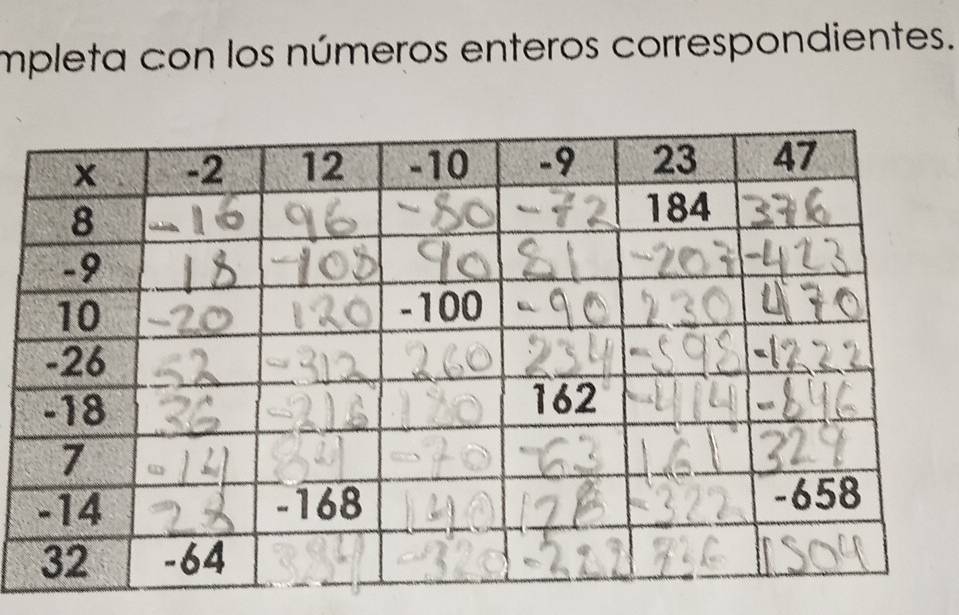 mpleta con los números enteros correspondientes.
x -2 12 -10 -9 23 47
8 -16 96 -80 -72 184 376
-9 18 -108 90 81 -207 -423
10 -20 120 -100 -90 230 470
-26 52 -312 260 234 -598 -1222
-18 36 -216 180 162 -414 -846
7 -14 84 -70 -63 161 329
-14 28 -168 140 128 -322 -658
32 -64 384 -320 736 1504